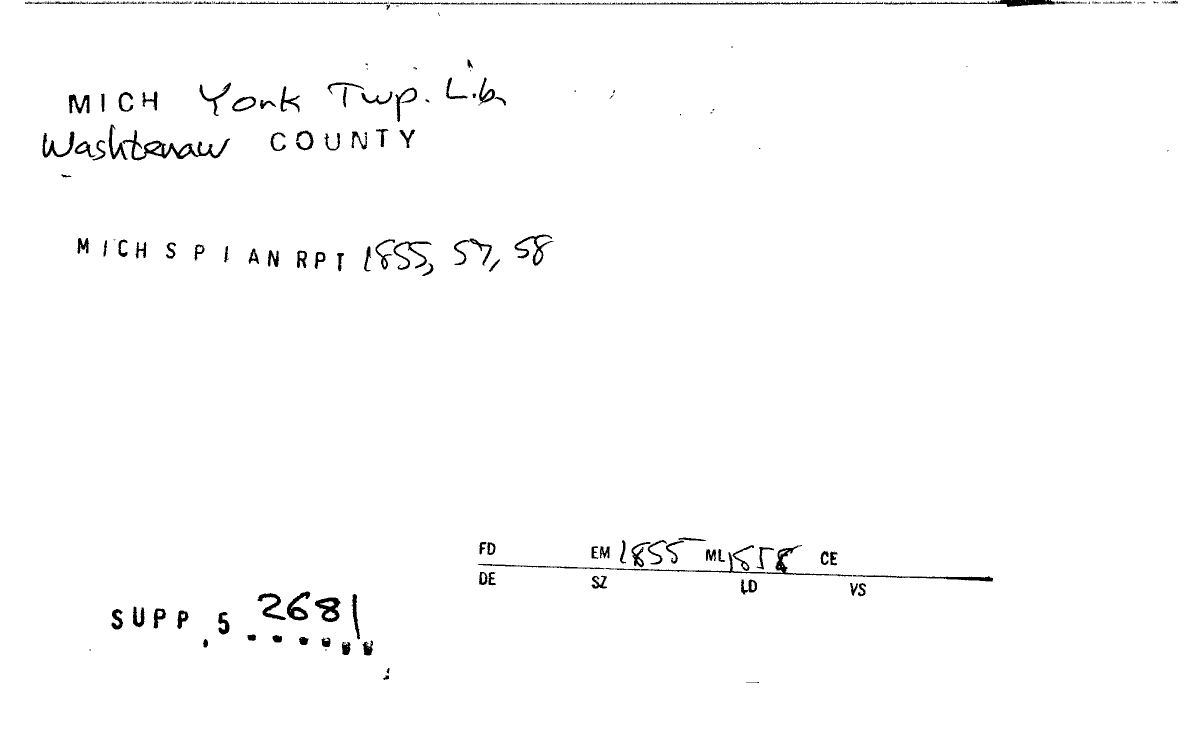 MICH York Twp. Lib.
Washtenaw COUNTY
MICH SPI AN RPT 1855, 57, 58
FD EM 1855 ML 1858 CE
DE SZ LD VS
SUPP. 5 2681